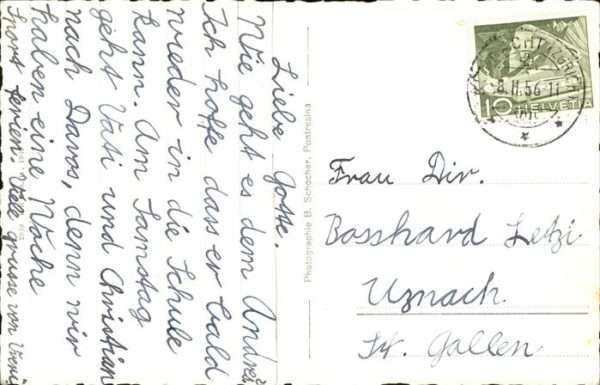 Liebe Gotte.
Wie geht es dem Andrea
Ich hoffe dass er bald
wieder in die Schule
kann. Am Samstag
geht Vati und Christian
nach Davos, denn wir
haben eine Woche
Sport ferien. Viele grüsse von
Photographie B. Schocher, Pontresina
8.II.56.11
10 HELVETIA
Frau Dir.
Bosshard Letzi
Uznach.
St. Gallen